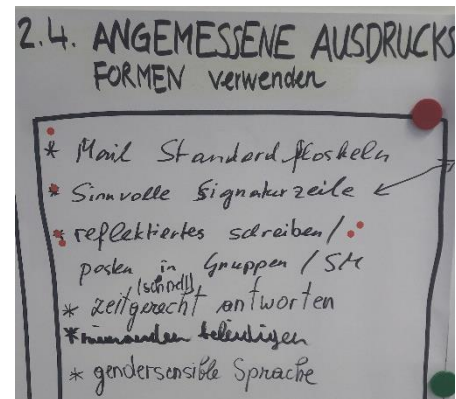 2.4. ANGEMESSENE AUSDRUCKS
FORMEN verwenden
* Mail Standardfloskeln
* Sinnvolle Signaturzeile
* reflektiertes schreiben/
posten in Gruppen / SM
(schnell)
* zeitgerecht antworten
* niemanden beleidigen
* gendersensible Sprache